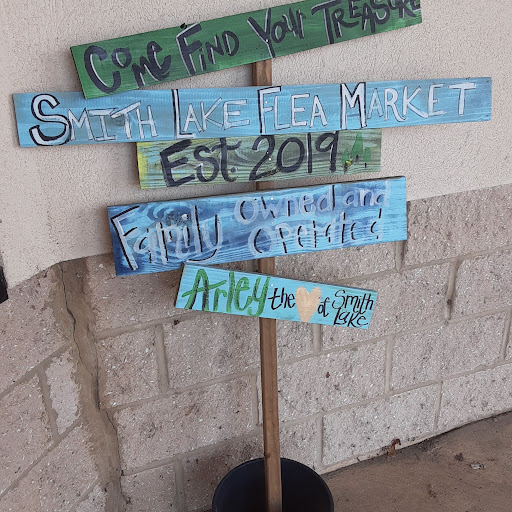 Come Find Your Treasure
Smith Lake Flea Market
Est. 2019
Family Owned and
Operated
Arley the of Smith
Lake